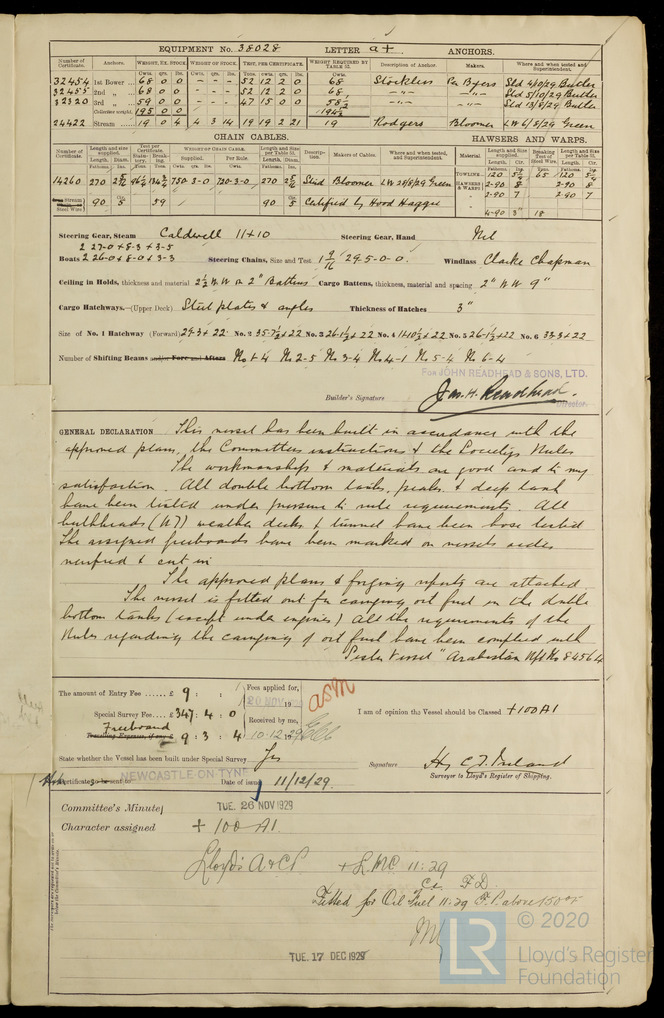 EQUIPMENT No. 38028 LETTER a+ ANCHORS.
Number of Certificate. Anchors. WEIGHT, EX. STOCK. WEIGHT OF STOCK. TEST, PER CERTIFICATE. WEIGHT REQUIRED BY TABLE 22. Description of Anchor. Makers. Where and when tested and Superintendent.
32454 1st Bower 68 0 0 - - - 52 12 2 0 68 Stockless Per Byers Sld 4/10/29 Butler
32455 2nd " 68 0 0 - - - 52 12 2 0 68 -"- -"- Sld 5/10/29 Butler
32320 3rd " 59 0 0 - - - 47 15 0 0 58½ -"- -"- Sld 13/8/29 Butler
Collective weight. 195 0 0 194½
24422 Stream 19 0 4 4 3 14 19 19 2 21 19 Rodgers Bloomer LW 6/8/29 Green
CHAIN CABLES. HAWSERS AND WARPS.
Number of Certificate. Length and size supplied. Test per Certificate. WEIGHT OF CHAIN CABLE. Length and size per Table 22. Description. Makers of Cables. Where and when tested, and Superintendent. Material. Length and size supplied. Breaking Test of Steel Wire. Length and size per Table 22.
14260 270 2 5/16 750-3-0 720-3-0 270 2 5/16 Stud Bloomer LW 28/8/29 Green
TOWLINE 120 65 120
HAWSERS & WARPS 2-90 8 2-90 8
" 2-90 7 2-90 7
Stream Steel Wire 90 59 90 Certified by Hood Haggie
4-90 3" 18
Steering Gear, Steam Caldwell 11+10 Steering Gear, Hand Nil
2 27-0+8-3+3-5
Boats 2 26-0+8-0+3-3 Steering Chains, Size and Test 1 9/16 29-5-0-0. Windlass Clarke Chapman
Ceiling in Holds, thickness and material 2½ W.W. 2" Battens Cargo Battens, thickness, material and spacing 2" W W 9"
Cargo Hatchways.—(Upper Deck) Steel plates & angles Thickness of Hatches 3"
Size of No. 1 Hatchway (Forward) 29-3+22 No. 2 35-7½+22 No. 3 26-1½+22 No. 4 11-10½+22 No. 5 26-1½+22 No. 6 33-3+22
Number of Shifting Beams and/or Fore and Afters No 1-4 No 2-5 No 3-4 No 4-1 No 5-4 No 6-4
FOR JOHN READHEAD & SONS, LTD.
Builder's Signature Jas. H. Readhead.
Director.
GENERAL DECLARATION This vessel has been built in accordance with the
approved plans, the Committees instructions & the Society's Rules
The workmanship & materials are good and to my
satisfaction. All double bottom tanks, peaks & deep tank
have been tested under pressure to rule requirements. All
bulkheads (WT) weather decks & tunnel have been hose tested
The assigned freeboards have been marked on vessels sides
verified & cut in
The approved plans & forging reports are attached.
The vessel is fitted out for carrying oil fuel in the double
bottom tanks (except under engines) All the requirements of the
Rules regarding the carrying of oil fuel have been complied with
Sister Vessel "Arabistan Npt No 84564
The amount of Entry Fee ...... £ 9 : : Fees applied for,
20 NOV 19
Special Survey Fee .... £ 347 : 4 : 0 Received by me,
Freeboard
Travelling Expenses, if any £ 9 : 3 : 4 10.12.1929
asm
I am of opinion the Vessel should be Classed +100A1
State whether the Vessel has been built under Special Survey Yes Signature
Surveyor to Lloyd's Register of Shipping.
Certificate to be sent to NEWCASTLE-ON-TYNE Date of issue 11/12/29.
Committee's Minute TUE. 26 NOV 1929
Character assigned + 100 A1.
Lloyd's A & CP. + L.M.C. 11.29
C.L. F.D.
Fitted for Oil Fuel 11.29 F.P. above 150°F
TUE. 17 DEC 1929
LR
© 2020
Lloyd's Register
Foundation